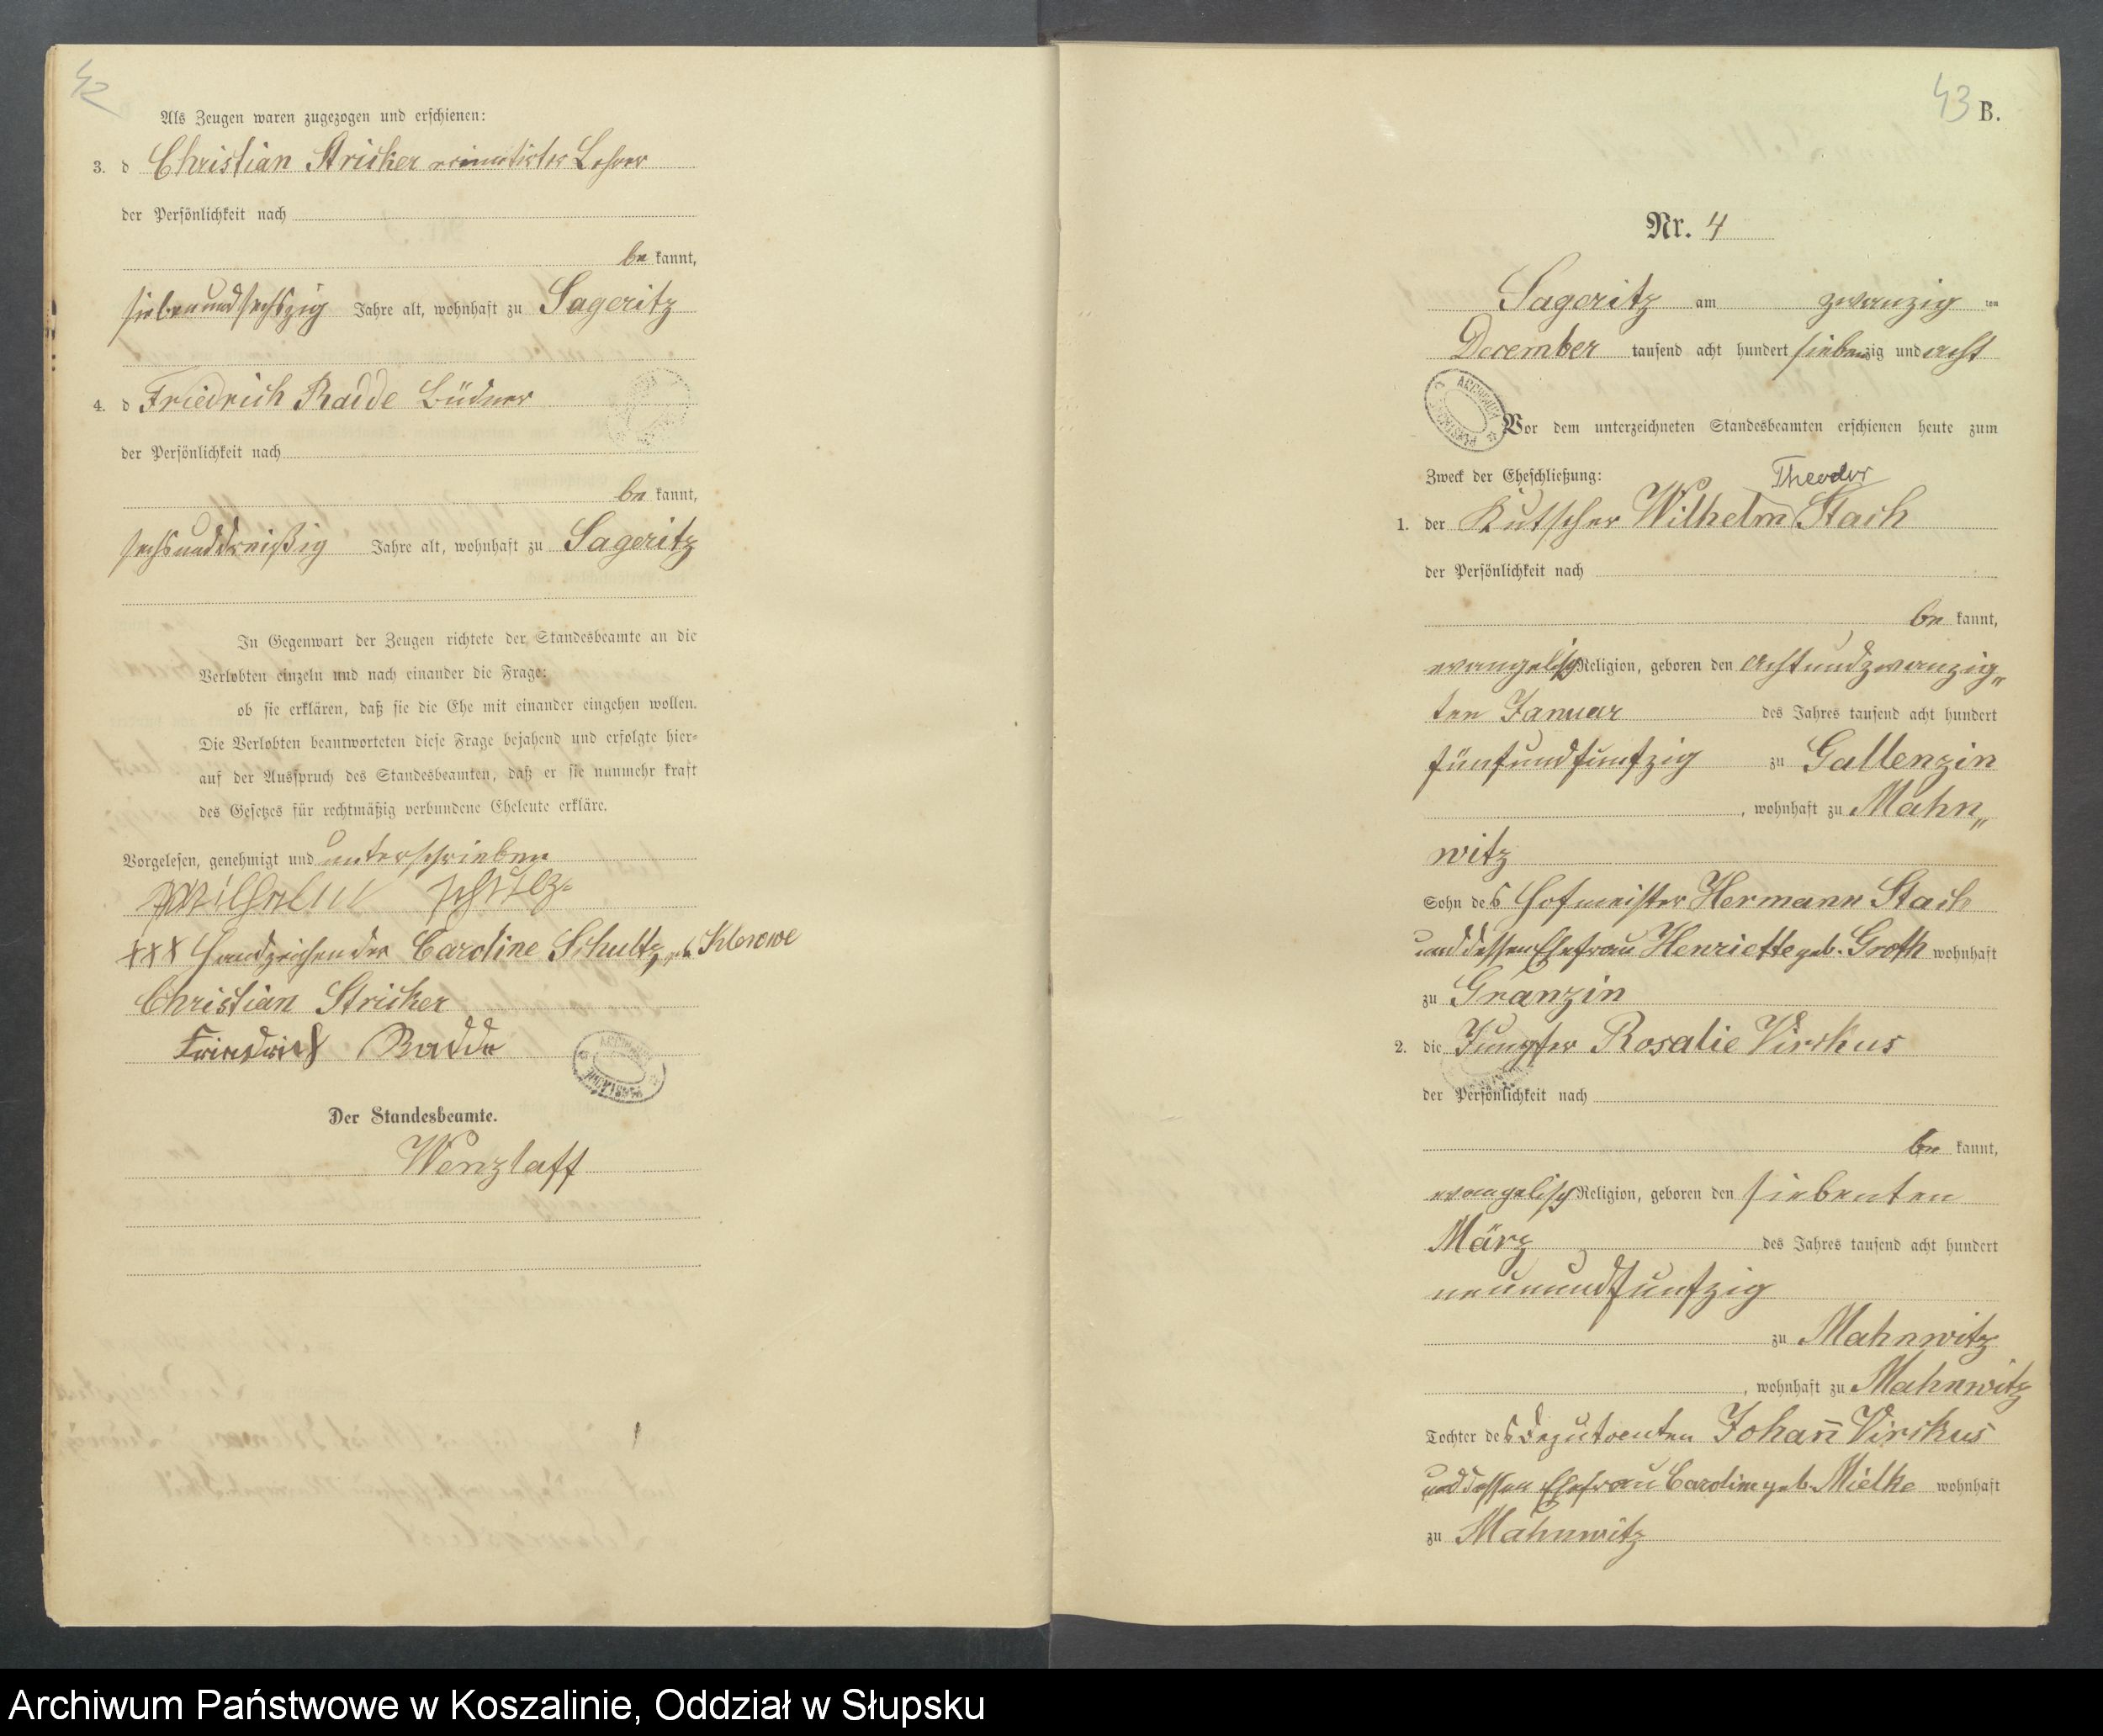 42
Als Zeugen waren zugezogen und erschienen:
3. d Christian Stricker emeritirter Lehrer
der Persönlichkeit nach
be kannt,
siebenundsechszig Jahre alt, wohnhaft zu Sageritz
4. d Friedrich Radde Büdner
der Persönlichkeit nach
be kannt,
sechsunddreißig Jahre alt, wohnhaft zu Sageritz
In Gegenwart der Zeugen richtete der Standesbeamte an die
Verlobten einzeln und nach einander die Frage:
ob sie erklären, daß sie die Ehe mit einander eingehen wollen.
Die Verlobten beantworteten diese Frage bejahend und erfolgte hier-
auf der Ausspruch des Standesbeamten, daß er sie nunmehr kraft
des Gesetzes für rechtmäßig verbundene Eheleute erkläre.
Vorgelesen, genehmigt und unterschrieben
Wilhelm Schulz
XXX Handzeichen der Caroline Schultz geb Klewwe
Christian Stricker
Friedrich Radde
Der Standesbeamte.
Wenzlaff
43 B.
Nr. 4
Sageritz am zwanzig ten
December tausend acht hundert siebenzig und acht
Vor dem unterzeichneten Standesbeamten erschienen heute zum
Zweck der Eheschließung:
Theodor
1. der Kutscher Wilhelm Stach
der Persönlichkeit nach
be kannt,
evangelisch Religion, geboren den achtundzwanzig„
ten Januar des Jahres tausend acht hundert
fünfundfunfzig zu Gallenzin
, wohnhaft zu Mahn„
witz
Sohn des Hofmeister Hermann Stach
und dessen Ehefrau Henriette geb. Groth wohnhaft
zu Granzin
2. die Jungfer Rosalie Virchus
der Persönlichkeit nach
be kannt,
evangelisch Religion, geboren den siebenten
März des Jahres tausend acht hundert
neunundfunfzig
zu Mahnwitz
, wohnhaft zu Mahnwitz
Tochter des Deputanten Johañ Virchus
und dessen Ehefrau Caroline geb. Mielke wohnhaft
zu Mahnwitz
Archiwum Państwowe w Koszalinie, Oddział w Słupsku